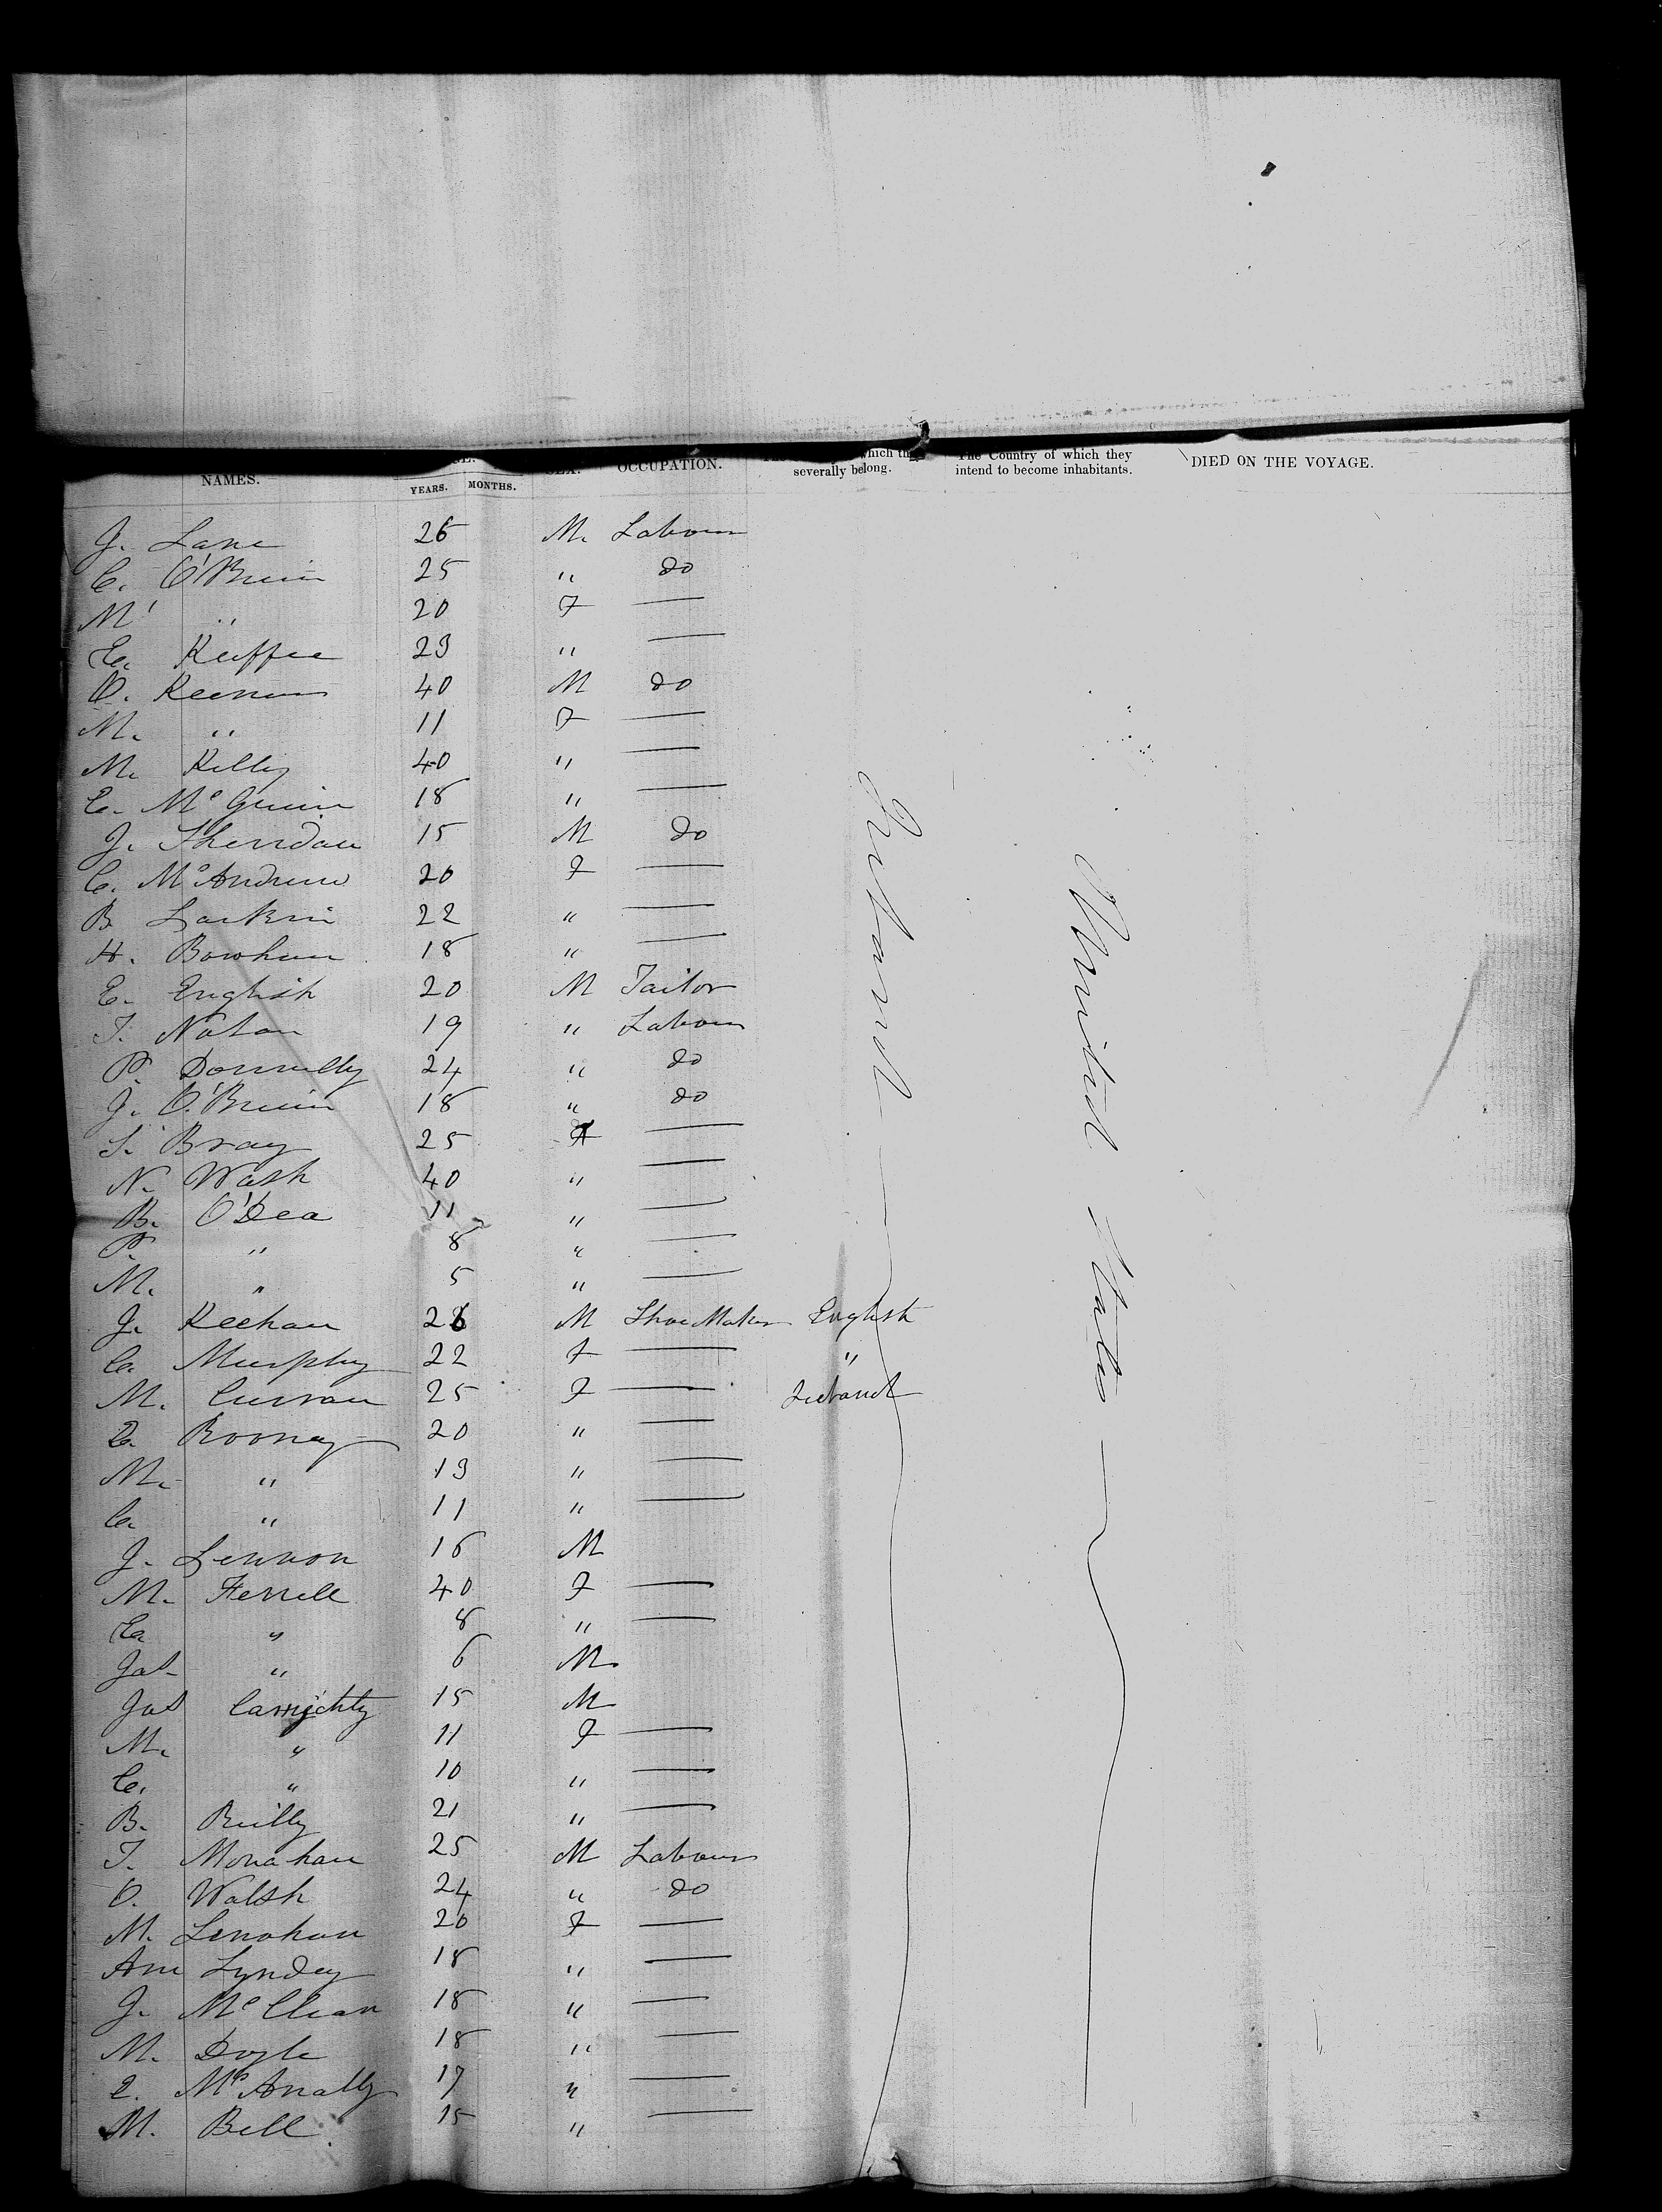 NAMES. YEARS. MONTHS. OCCUPATION. which severally belong. The Country of which they intend to become inhabitants. DIED ON THE VOYAGE.
J. Lane 26 M. Labour
C. O'Brien 25 " do
M " 20 F —
E. Keeffee 23 " —
O. Keenan 40 M do
M. " 11 F —
M. Kelly 40 " —
C. McGuin 18 " —
J. Sherridan 15 M do
C. McAndrew 20 F —
B Larkin 22 " —
H. Bowhan 18 " —
E. English 20 M Tailor
T. Nolan 19 " Labour
P. Donnelly 24 " do
J. O'Brien 18 " do
S. Bray 25 F —
N. Wash 40 " —
B. O'Dea 11 " —
P. " 8 " —
M. " 5 " —
J. Keehan 26 M Shoe Maker English
C. Murphy 22 F — "
M. Curran 25 F — Ireland
E. Rooney 20 " —
M. " 13 " —
C. " 11 " —
J. Lennon 16 M
M. Ferrell 40 F —
Ea " 8 " —
Jas " 6 M
Jas Carrighty 15 M
M. " 11 F —
C. " 10 " —
B. Reilly 21 " —
T. Monahan 25 M Labour
O. Walsh 24 " do
M. Lenohan 20 F —
Ann Lyndey 18 " —
J. McClean 18 " —
M. Doyle 18 " —
E. McAnally 17 " —
M. Bell 15 " —
Ireland
United States